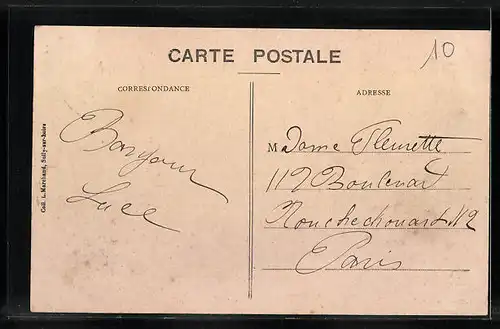 CARTE POSTALE
10
CORRESPONDANCE
ADRESSE
Bonjour
Luce
Madame Fleurette
112 Boulevart
Rouchechouard N2
Paris
Coll. L. Marchand, Sully-sur-Loire